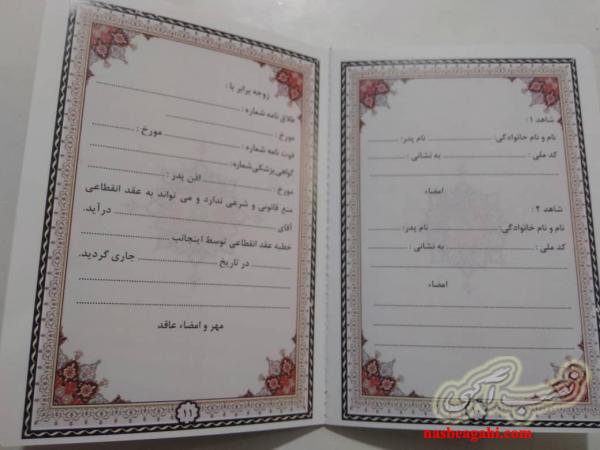 شاهد ۱:
نام و نام خانوادگی: نام پدر:
کد ملی: به نشانی:
امضاء
شاهد ۲:
نام و نام خانوادگی: نام پدر:
کد ملی: به نشانی:
امضاء
زوجه برابر با:
طلاق نامه شماره:
مورخ:
فوت نامه شماره: مورخ:
گواهی پزشکی شماره:
مورخ: اذن پدر:
منع قانونی و شرعی ندارد و می تواند به عقد انقطاعی
آقای درآید.
خطبه عقد انقطاعی توسط اینجانب
در تاریخ جاری گردید.
مهر و امضاء عاقد
۱۱
نصب آگهی
nasbeagahi.com